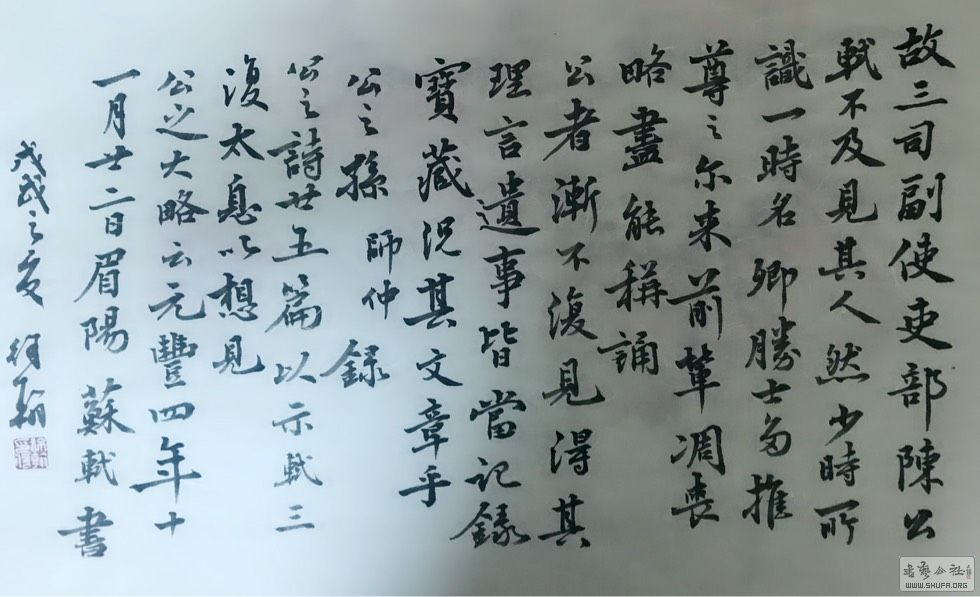 故三司副使吏部陳公
軾不及見其人然少時所
識一時名卿勝士多推
尊之尔来前輩凋喪
略盡能稱誦
公者漸不復見得其
理言遺事皆當記錄
寶藏況其文章乎
公之孫師仲錄
公之詩廿五篇以示軾三
復太息以想見
公之大略云元豐四年十
一月廿二日眉陽蘇軾書
戊戌之夏
WWW.SHUFA.ORG